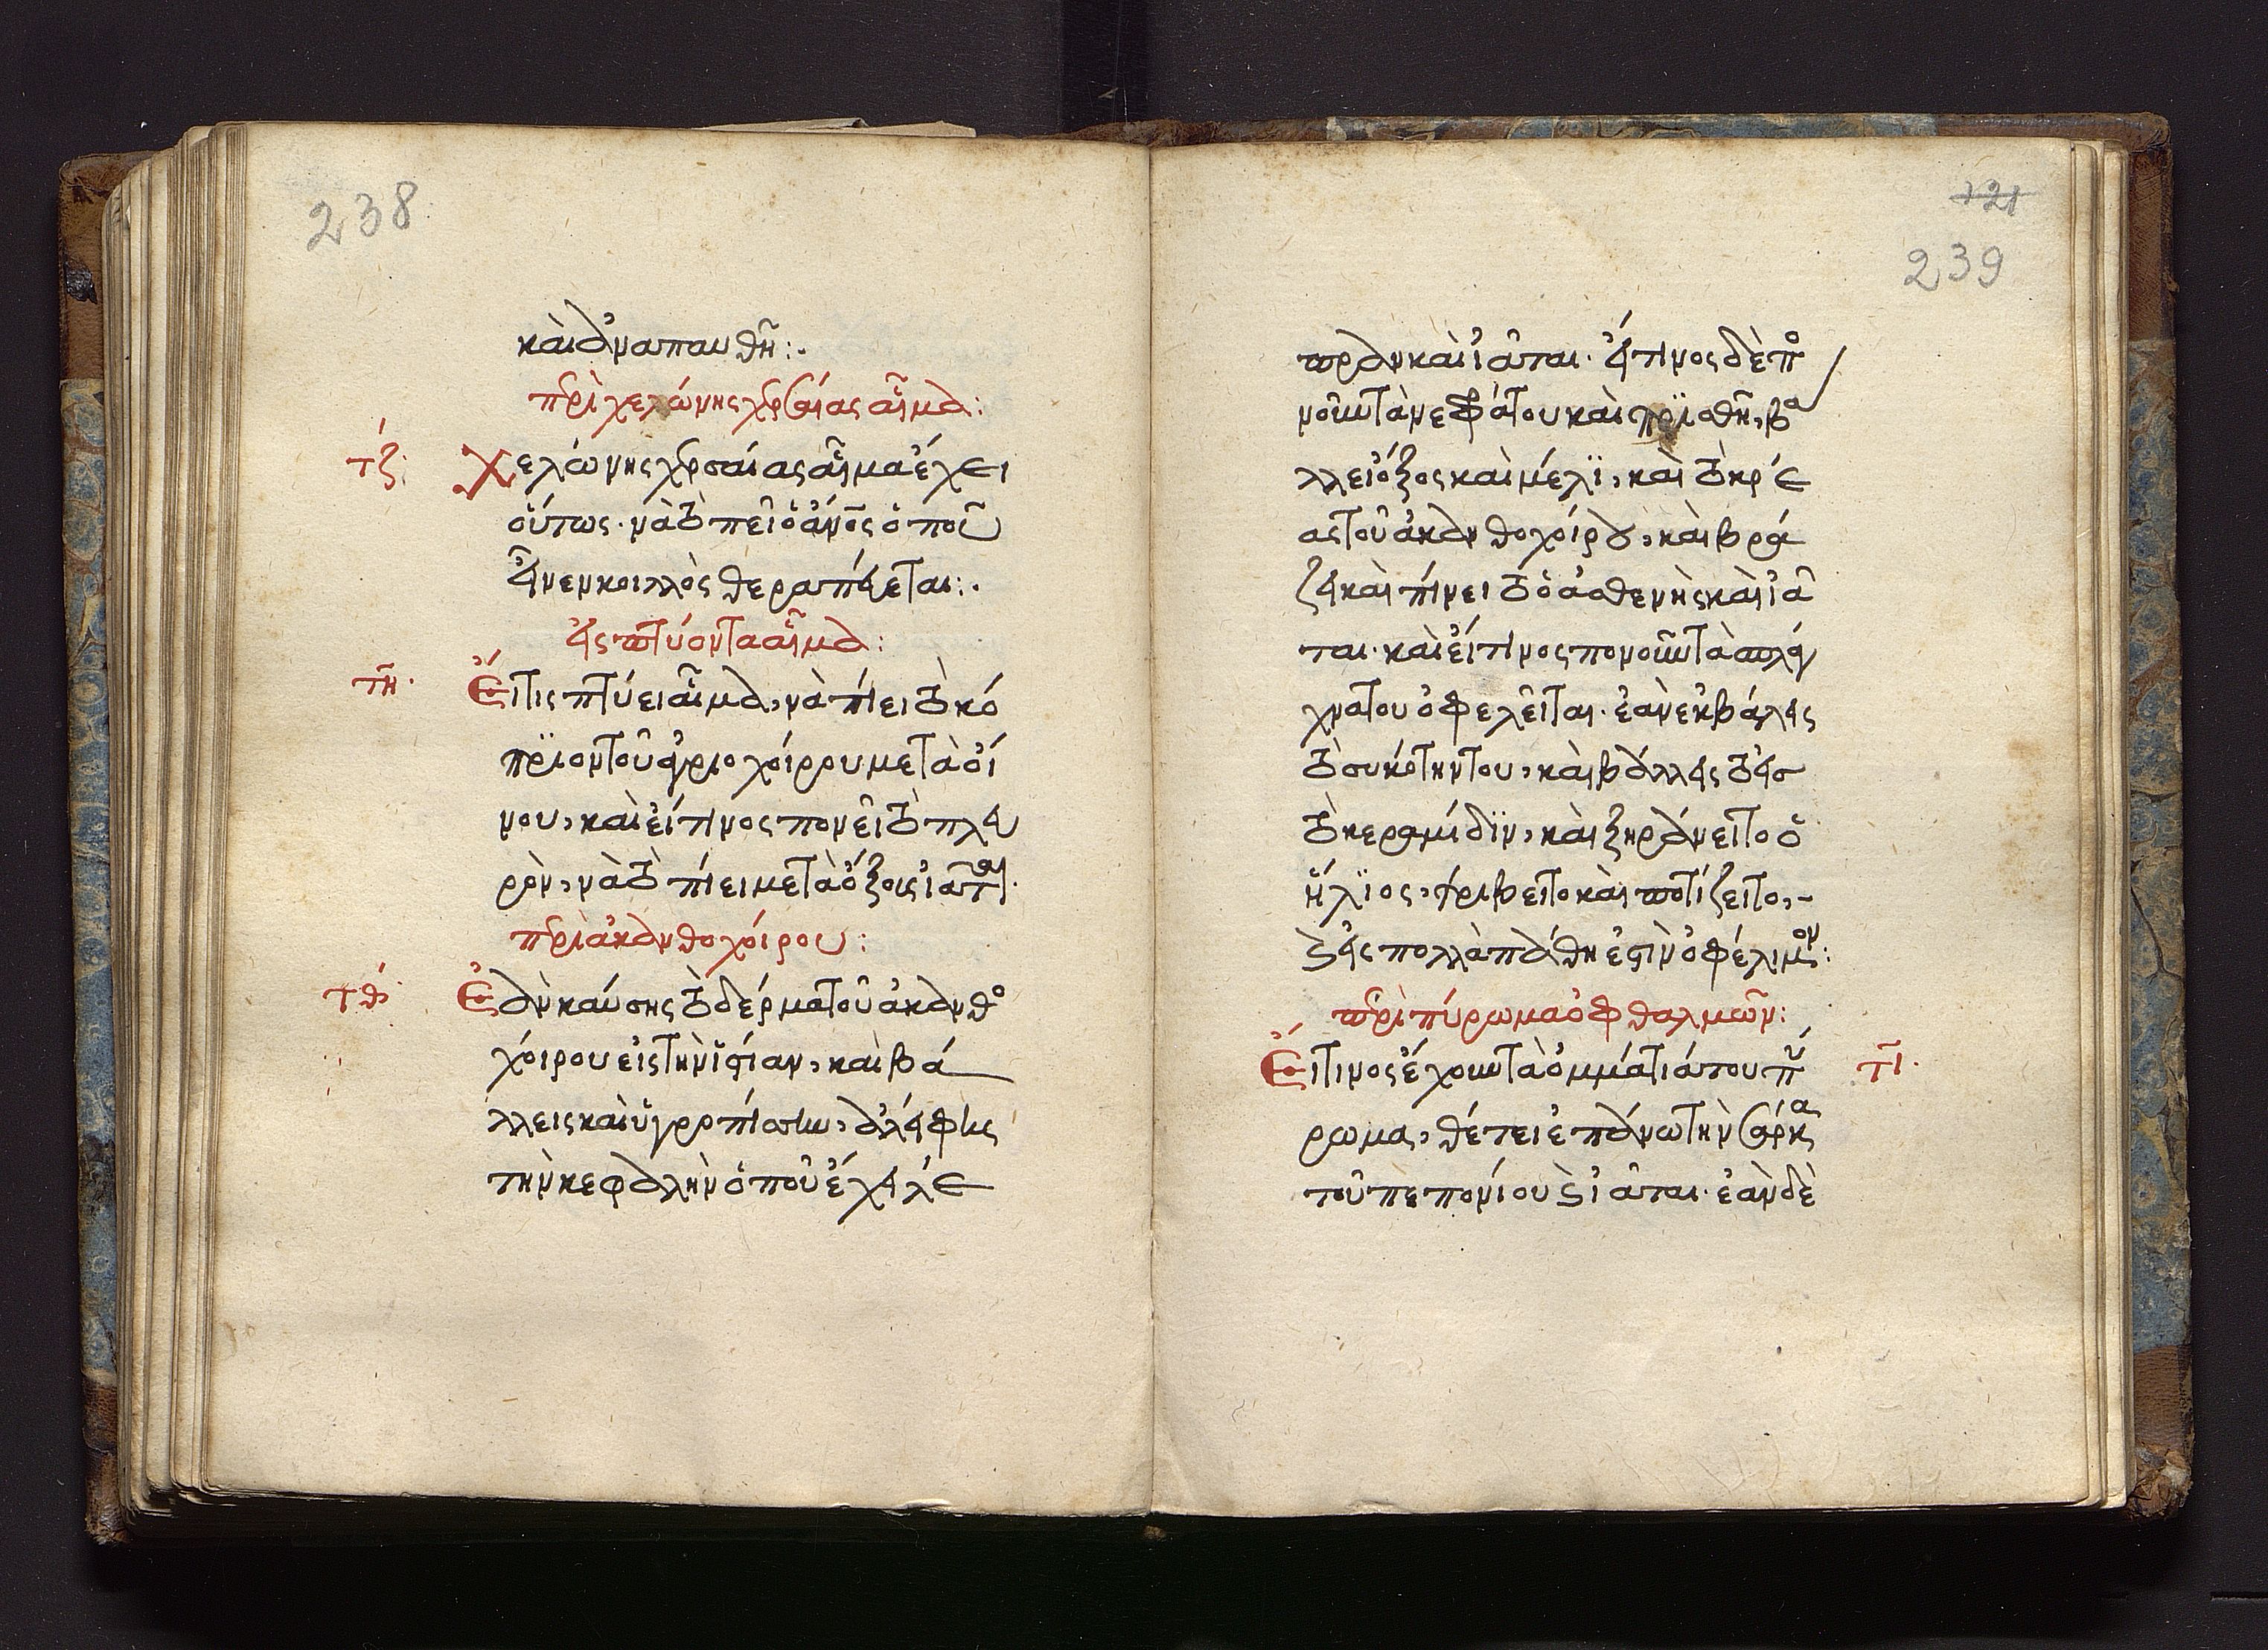 238
καὶ ἀναπαυθῆ:.
περὶ χελώνης χερσαίας αἷμα:
τζ: Χελώνης χερσαίας αἷμα ἔχει
οὕτως· νὰ τὸ πεῖ ὁ ἄνος ὁποῦ
εἶνεν κοιλλὸς θεραπεύεται:.
εἰς πτύοντα αἷμα:
τη· Εἴ τις πτύει αἷμα, νὰ πίει τὸ κό
πριον τοῦ ἀγριοχοίρου μετὰ οἴ
νου, καὶ εἴ τινος πονεῖ τὸ πλευ
ρὸν, νὰ τὸ πίει μετὰ ὄξους ἰᾶται.
περὶ ἀκανθοχοίρου:
τθ· Ἐὰν καύσης τὸ δέρμα τοῦ ἀκανθο
χοίρου εἰς τὴν ἱστίαν, καὶ βά
λλεις καὶ ὑγροπίσσιν, ἀλείφεις
τὴν κεφαλὴν ὁποῦ ἔχει λέ
121
239
πραν καὶ ἰᾶται. εἴ τινος δὲ πο
νοῦν τὰ νεφρά του καὶ πρισθῆ, βα
λλει ὄξος καὶ μέλι, καὶ τὸ κρέ
ας τοῦ ἀκανθοχοίρου, καὶ βρά
ζει καὶ πίνει τὸ ὁ ἀσθενὴς καὶ ἰᾶ
ται. καὶ εἴ τινος πονοῦν τὰ σπλά
χνα του ὀφελεῖται. ἐὰν ἐκβάλης
τὸ συκότην του, καὶ βάλλεις τὸ εἰσ
τὸ κεραμίδιν, καὶ ξηράνει το ὁ
ἥλιος, τρίβει το καὶ ποτίζει το, -
καὶ εἰς πολλὰ πάθη ἐστὶν ὀφέλιμον:
περὶ πύρωμα ὀφθαλμῶν:
Εἴ τινος ἔχουν τὰ ὀμμάτιά του πύ τι·
ρωμα, θέτει ἐπάνω τὴν σάρκα
τοῦ πεπονίου καὶ ἰᾶται. ἐὰν δὲ